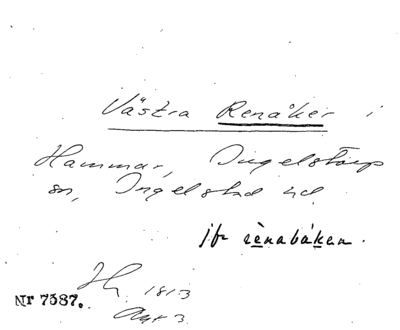 Västra Renåker i
Hammar, Ingelstorps
sn, Ingelstad hd.
jfr rènabáken.
1813
Nr 7387.
Akt 3